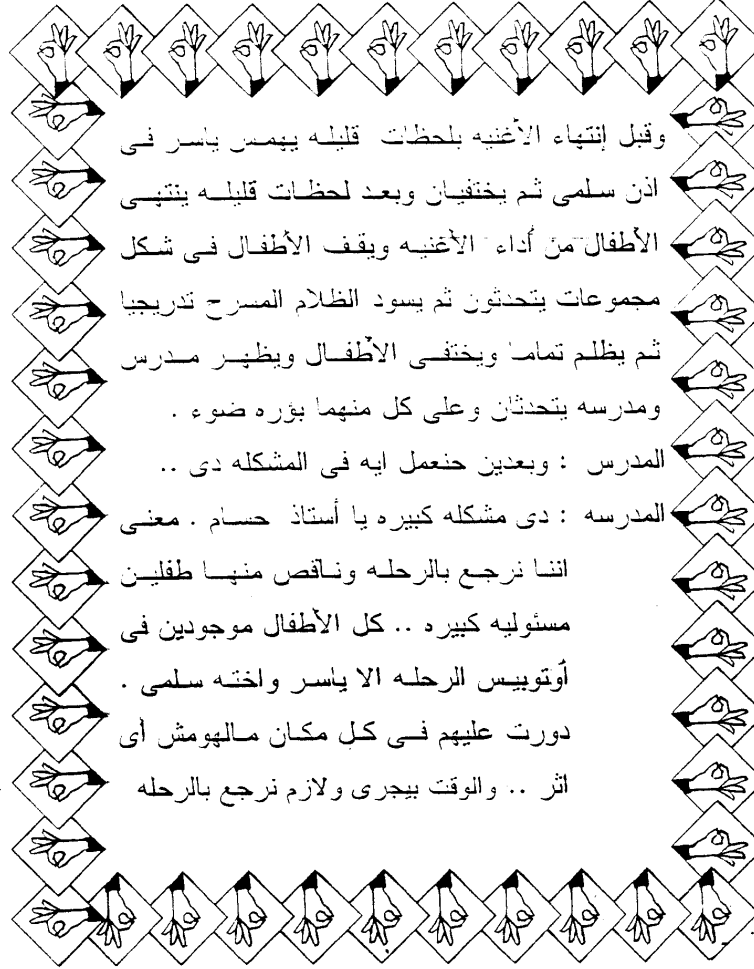 وقبل إنتهاء الأغنيه بلحظات قليله يهمس ياسر فى
اذن سلمى ثم يختفيان وبعد لحظات قليله ينتهى
الأطفال من أداء الأغنيه ويقف الأطفال فى شكل
مجموعات يتحدثون ثم يسود الظلام المسرح تدريجيا
ثم يظلم تماما ويختفى الأطفال ويظهر مدرس
ومدرسه يتحدثان وعلى كل منهما بؤره ضوء .
المدرس : وبعدين حنعمل ايه فى المشكله دى ..
المدرسه : دى مشكله كبيره يا أستاذ حسام . معنى
اننا نرجع بالرحله وناقص منها طفلين
مسئوليه كبيره .. كل الأطفال موجودين فى
أوتوبيس الرحله الا ياسر واخته سلمى .
دورت عليهم فى كل مكان مالهومش أى
اثر .. والوقت بيجرى ولازم نرجع بالرحله